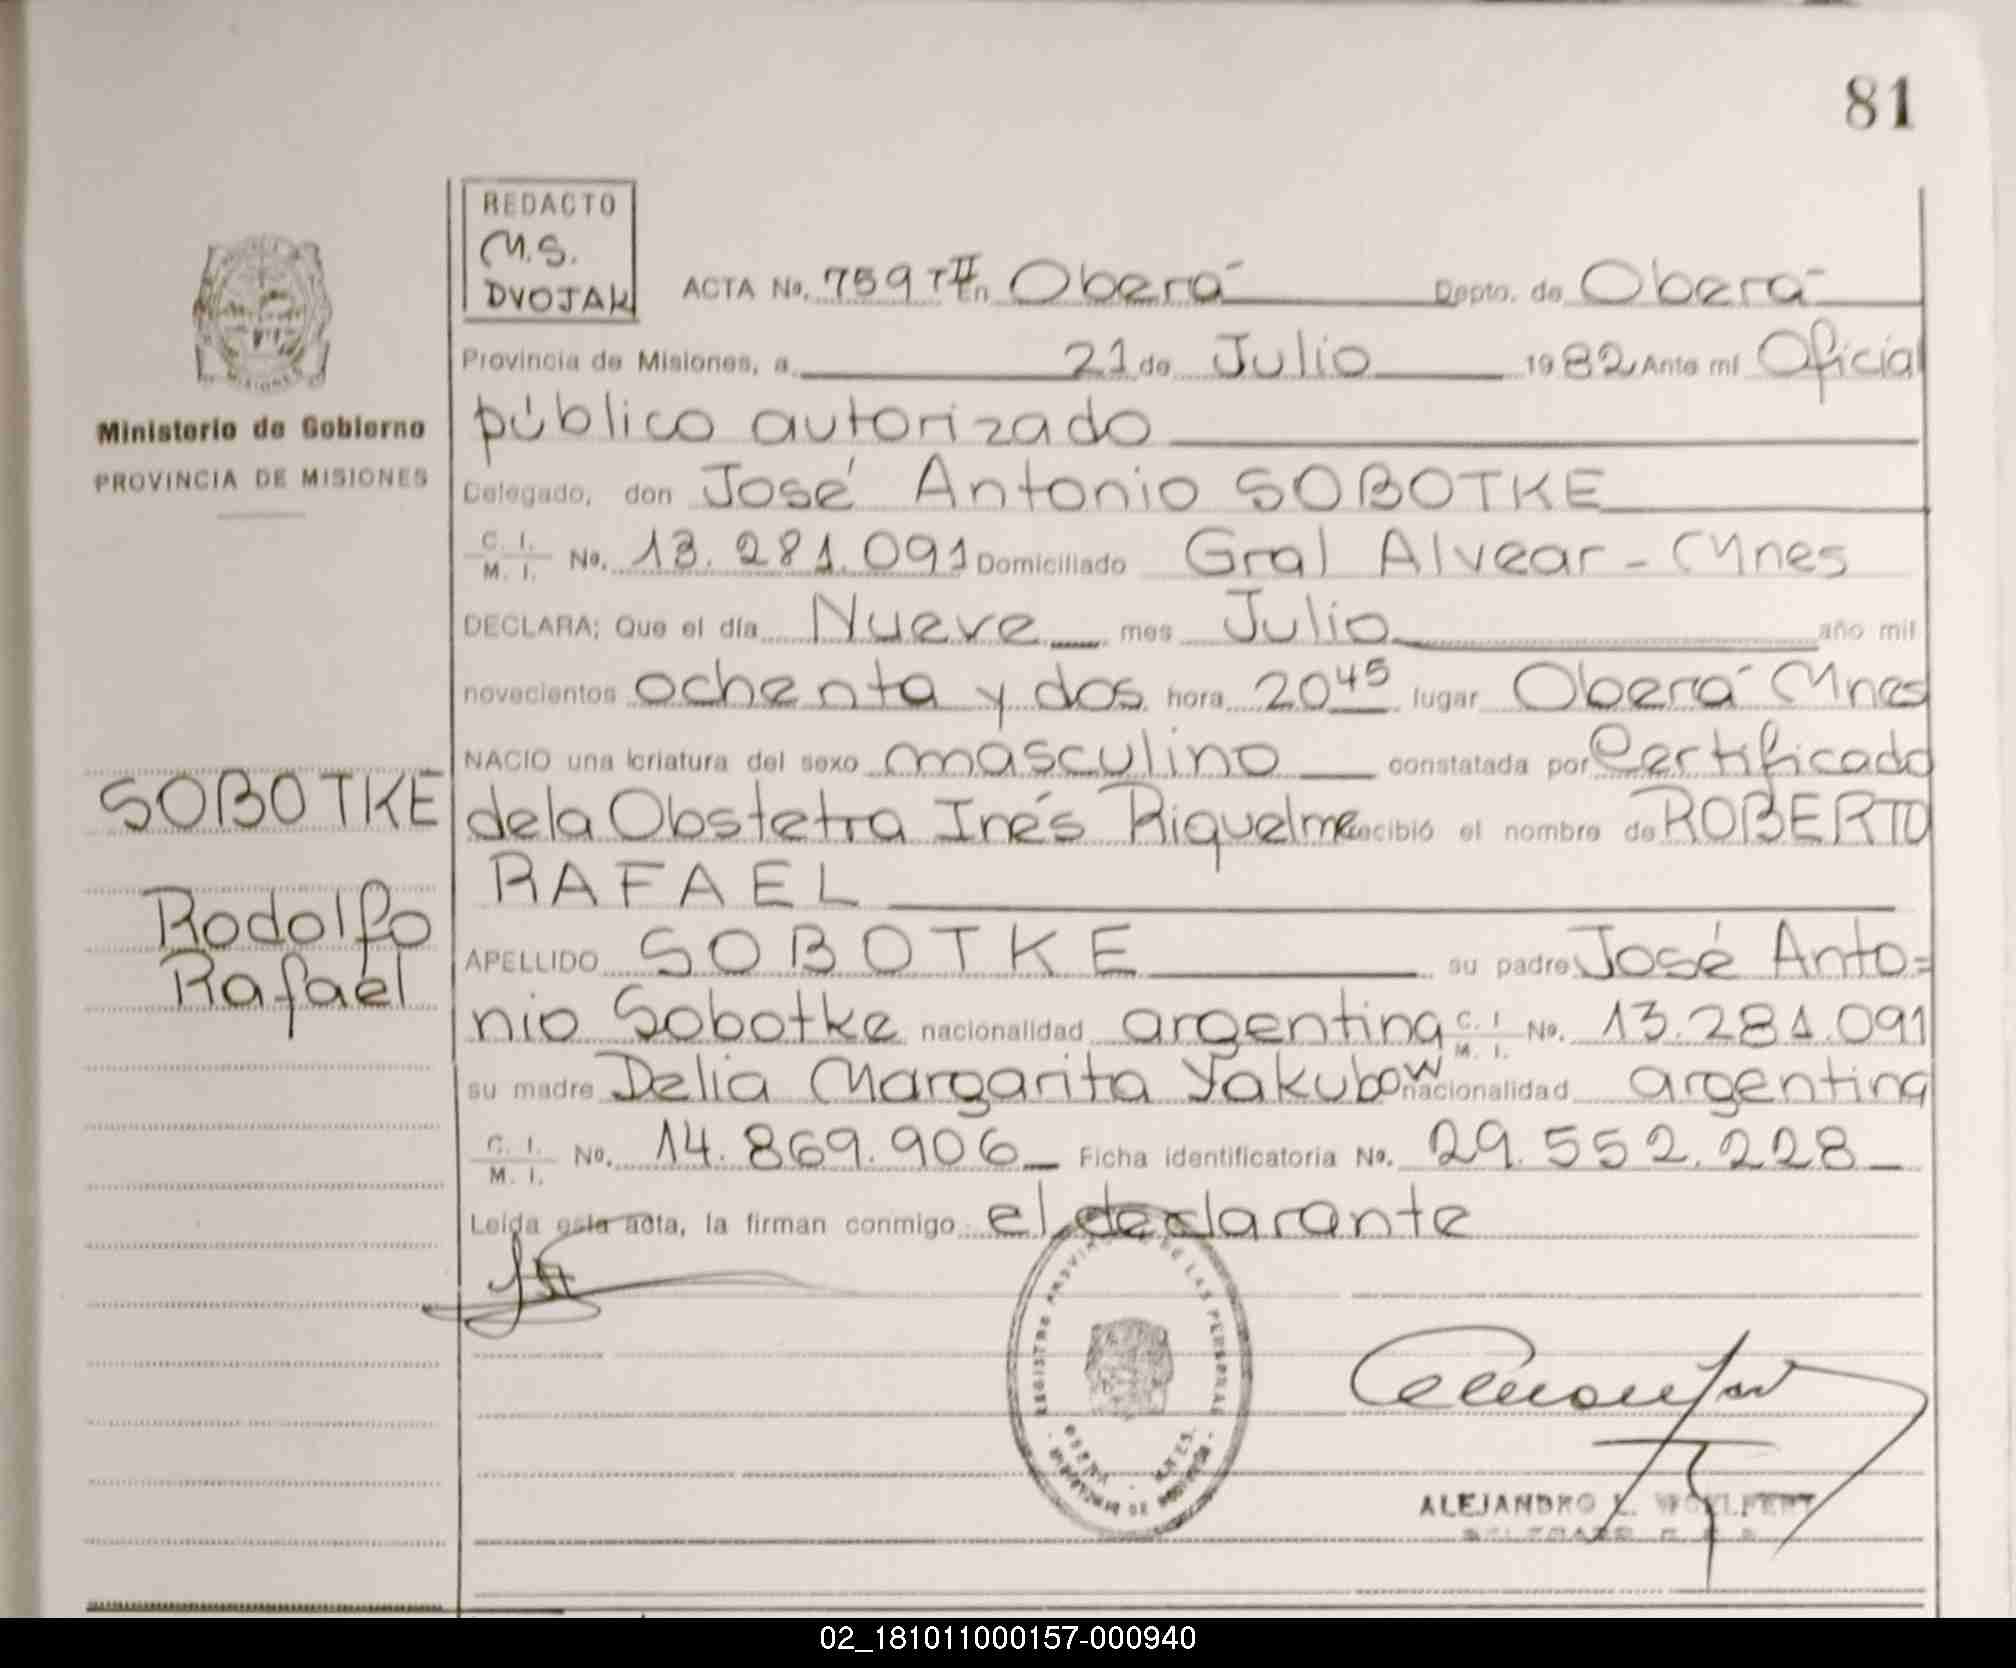 81
REDACTO
M.S.
DVOJAK
ACTA No. 759 TII En Oberá Depto. de Oberá
Provincia de Misiones, a 21 de Julio 1982 Ante mi Oficial
público autorizado
Ministerio de Gobierno
PROVINCIA DE MISIONES
Delegado, don José Antonio SOBOTKE
C. I. / M. I. No. 13.281.091 Domiciliado Gral Alvear - Mnes
DECLARA; Que el día Nueve mes Julio año mil
novecientos ochenta y dos hora 20 45 lugar Oberá Mnes
NACIO una criatura del sexo masculino constatada por Certificado
SOBOTKE
dela Obstetra Inés Riquelme recibió el nombre de ROBERTO
RAFAEL
Rodolfo
Rafael
APELLIDO SOBOTKE su padre José Anto=
nio Sobotke nacionalidad argentina C. I. / M. I. No. 13.281.091
su madre Delia Margarita Yakubow nacionalidad argentina
C. I. / M. I. No. 14.869.906 Ficha identificatoria No. 29.552.228
Leída esta acta, la firman conmigo el declarante
REGISTRO PROVINCIAL DE LAS PERSONAS
OBERA MNES.
ALEJANDRO L. WOHLFERT
02_181011000157-000940